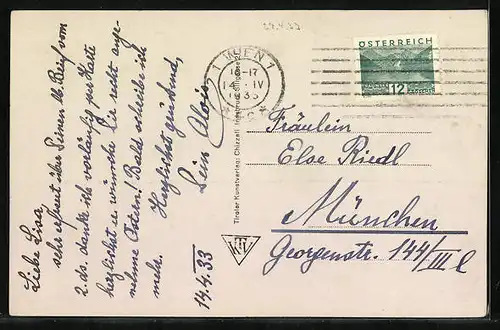 14.4.33
1 WIEN 1
16-17
14. IV
1933
ÖSTERREICH
12
Liebe Lisa,
sehr erfreut über Deinen lb. Brief vom
2. ds. danke ich vorläufig per Karte
herzlichst u. wünsche Dir recht ange-
nehme Ostern! Bald schreibe ich
mehr.
Herzlichst grüssend,
Dein Alois
14.4.33
Tiroler Kunstverlag Chizzali
KTI
Fräulein
Else Riedl
München
Georgenstr. 144/III l